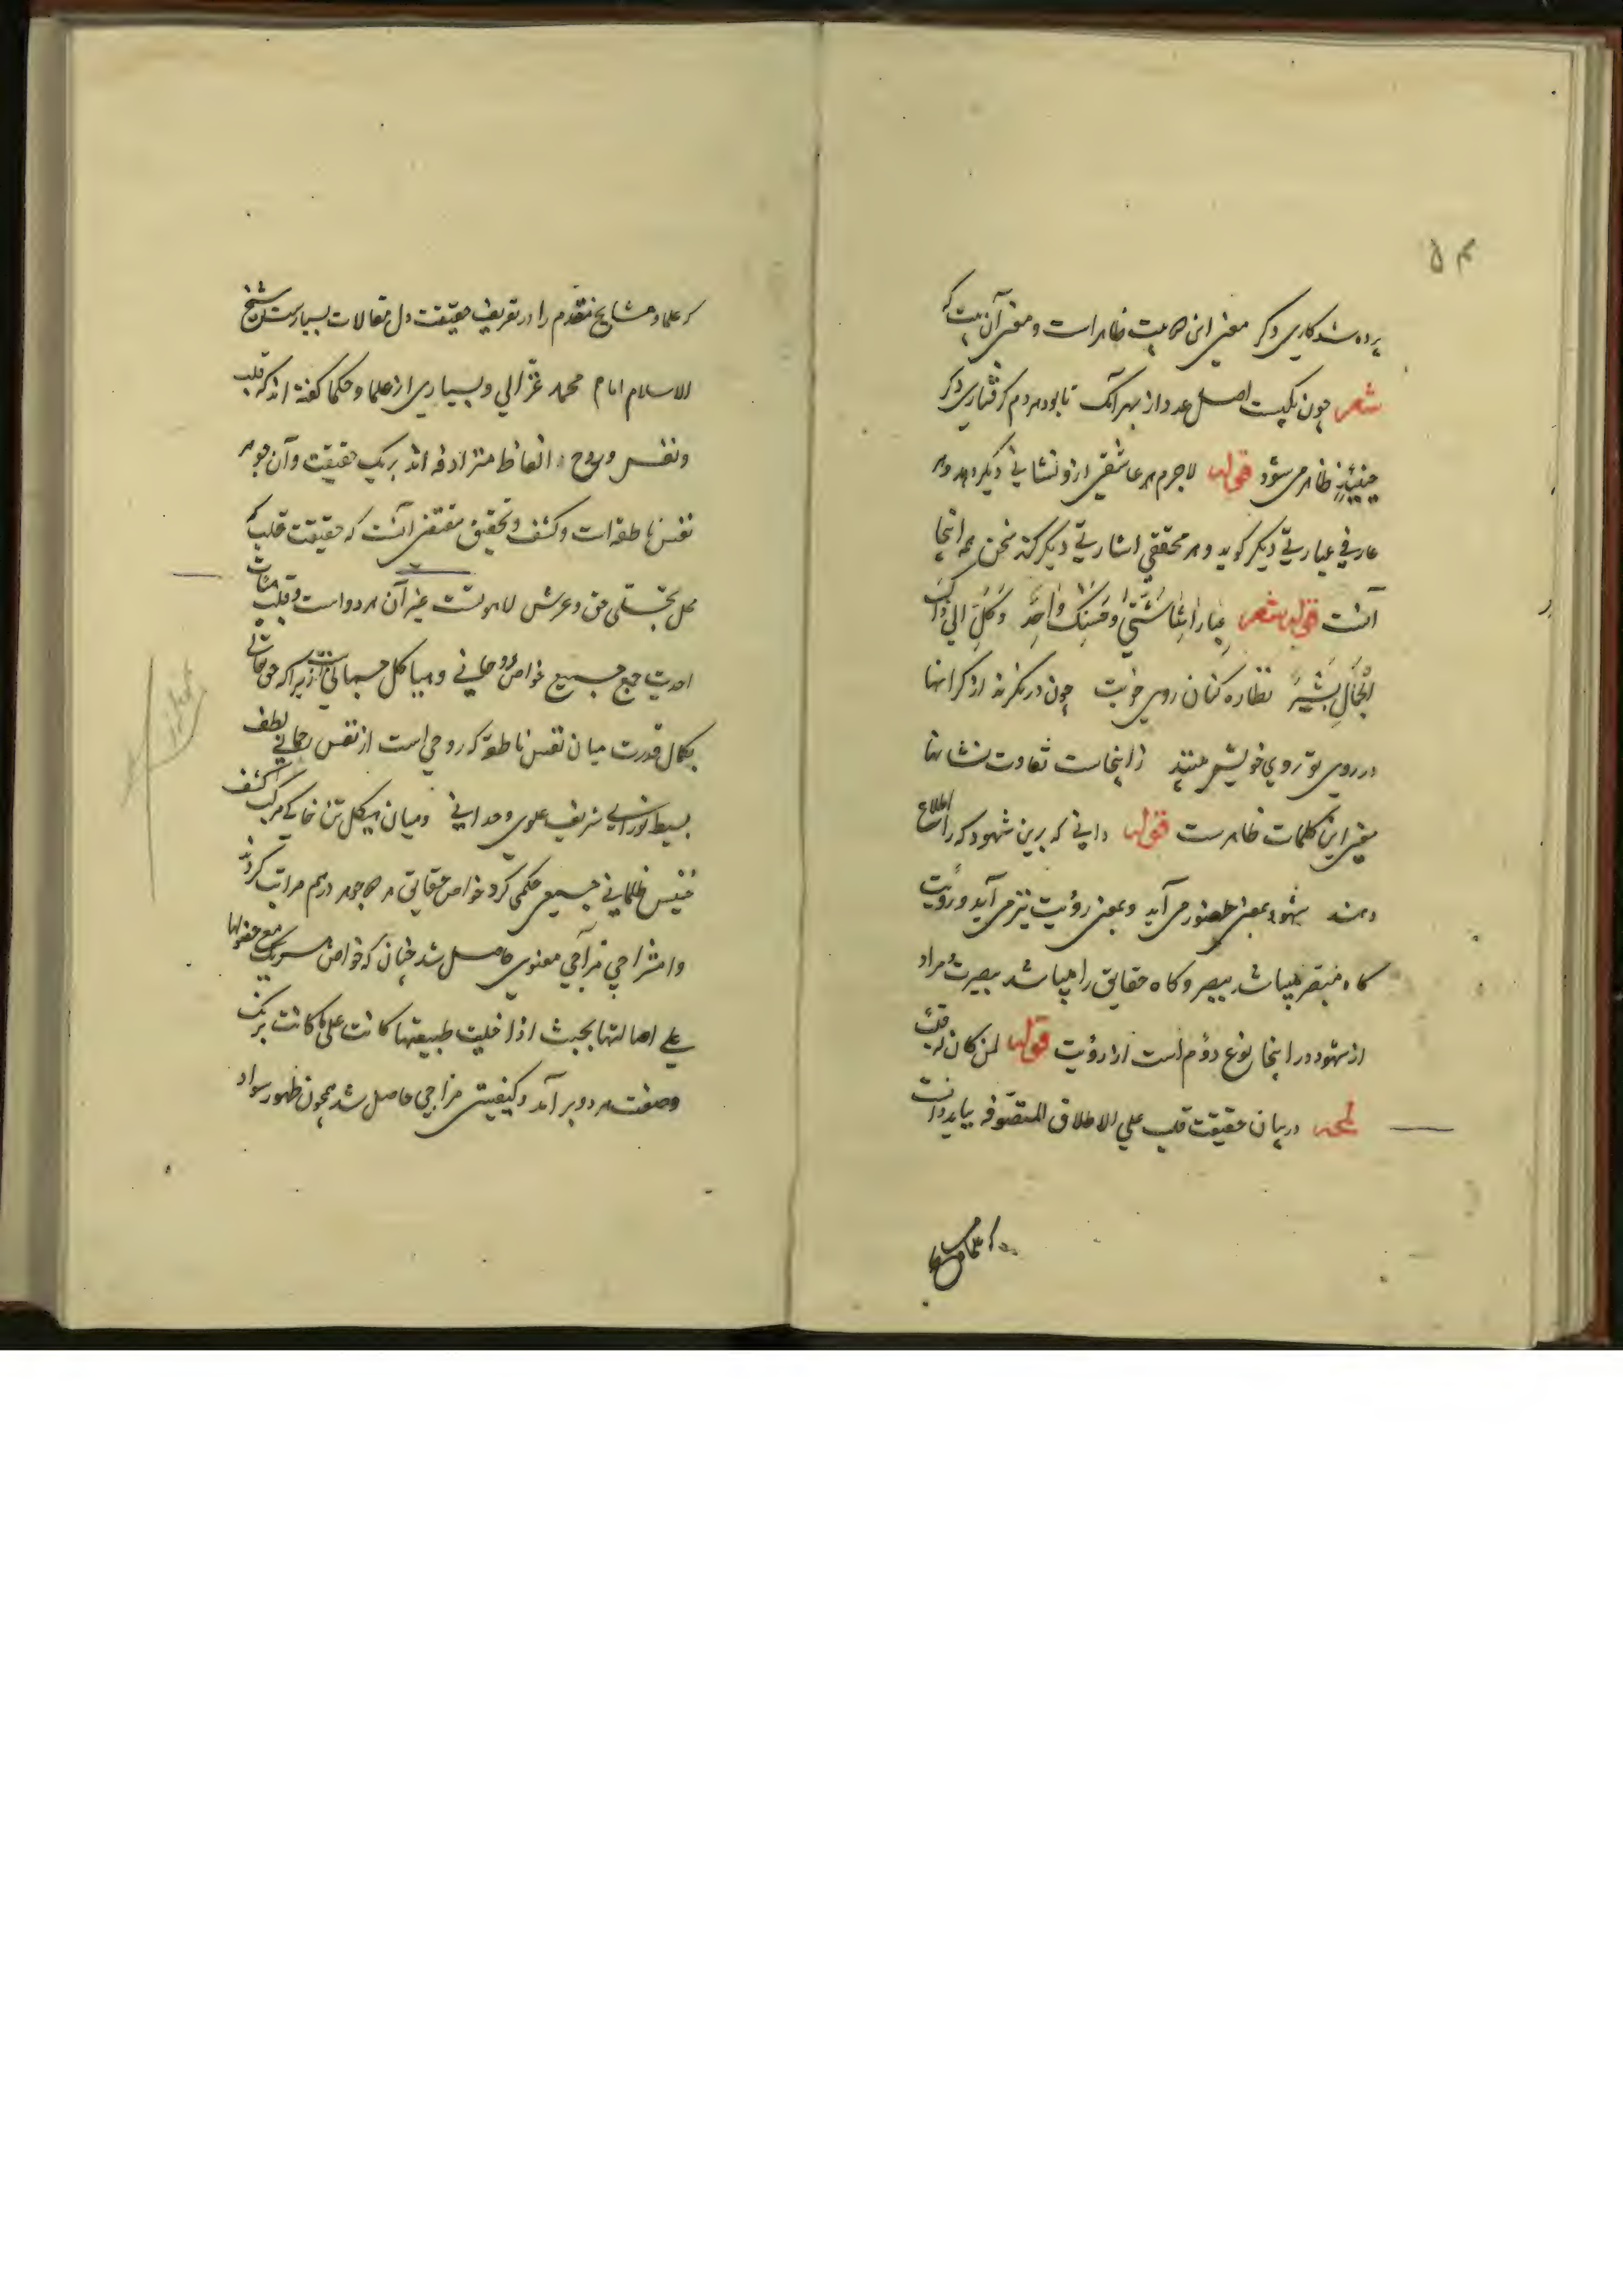 ۵۴
پرده شد کاری دکر معنی این صاحبیت ظاهر است و معنی آن بیت که
شعر چون یکیست اصل عدد از بهر آنک تا بود هردم کرفتاری دکر
حینئذٍ ظاهر می شود قوله لاجرم هر عاشقی ازو نشانی دیکر دهد و هر
عارفی عبارتی دیکر کوید و هر محققی اشارتی دیکر کند سخن همه اینجا
آنست قوله شعر عباراتنا شتی و حسنک واحد و کل الی ذاک
الجمال یشیر نظاره کنان روی خوبت چون در نکرند از کرانها
در روی تو روی خویش بینند زاینجاست تفاوت نشانها
معنی این کلمات ظاهرست قوله دانی که برین شهود که را اطلاع
دهند شهود بمعنی حضور می آید و بمعنی رؤیت نیز می آید و رؤیت
کاه مبصر میباشد ببصر و کاه حقایق را میباشد ببصیرت و مراد
از شهود در اینجا نوع دوم است از رؤیت قوله لمن کان له قلب
لمحه در بیان حقیقت قلب علی الاطلاق المتصوفه بباید دانست
که علما و مشایخ
که علما و مشایخ متقدم را در تعریف حقیقت دل مقالات بسیارست شیخ
الاسلام امام محمد غزالی و بسیاری از علما و حکما کفته اند که قلب
و نفس و روح الفاظ مترادفه اند بر یک حقیقت و آن جوهر
نفس ناطقه است و کشف و تحقیق مقتضی آنست که حقیقت قلب که
محل تجلی حق و عرش لاهوتست غیر آن هر دو است و قلب
احدیت جمع جمیع خواص روحانی و هیاکل جسمانی است زیرا که حق تعالی
بکمال قدرت میان نفس ناطقه که روحی است از نفس رحمانی لطف
بسیط نورانی شریف علوی وحدانی و میان هیکل تن خاکی مرکب کثیف
خسیس ظلمانی جمعی حکمی کرد و خواص حقایق هر در هم مراتب کردند
و امتزاجی مزاجی معنوی حاصل شد چنان که خواص هر یک مع حفظها
علی اصالتها بحیث اذا خلیت طبیعتها کانت علی ما کانت برنک
و صفت هر دو بر آمد و کیفیتی مزاجی حاصل شد همچون ظهور سواد